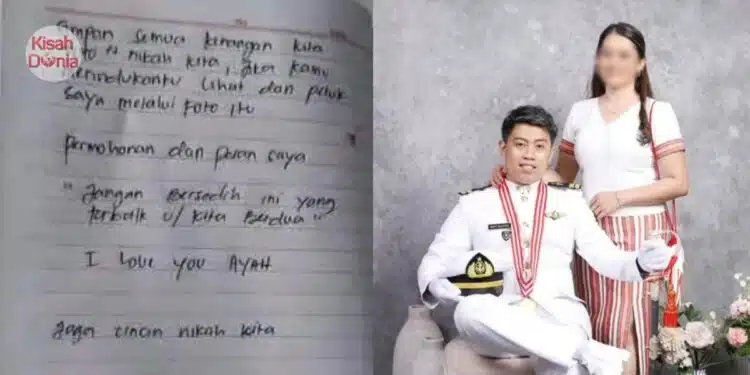 Kisah
Dunia
Simpan semua kenangan kita
foto" nikah kita, jika kamu
merindukanku lihat dan peluk
saya melalui foto itu
permohonan dan pesan saya
"Jangan Bersedih ini yang
terbaik u/ kita Berdua"
I Love you AYAH
Jaga cincin nikah kita